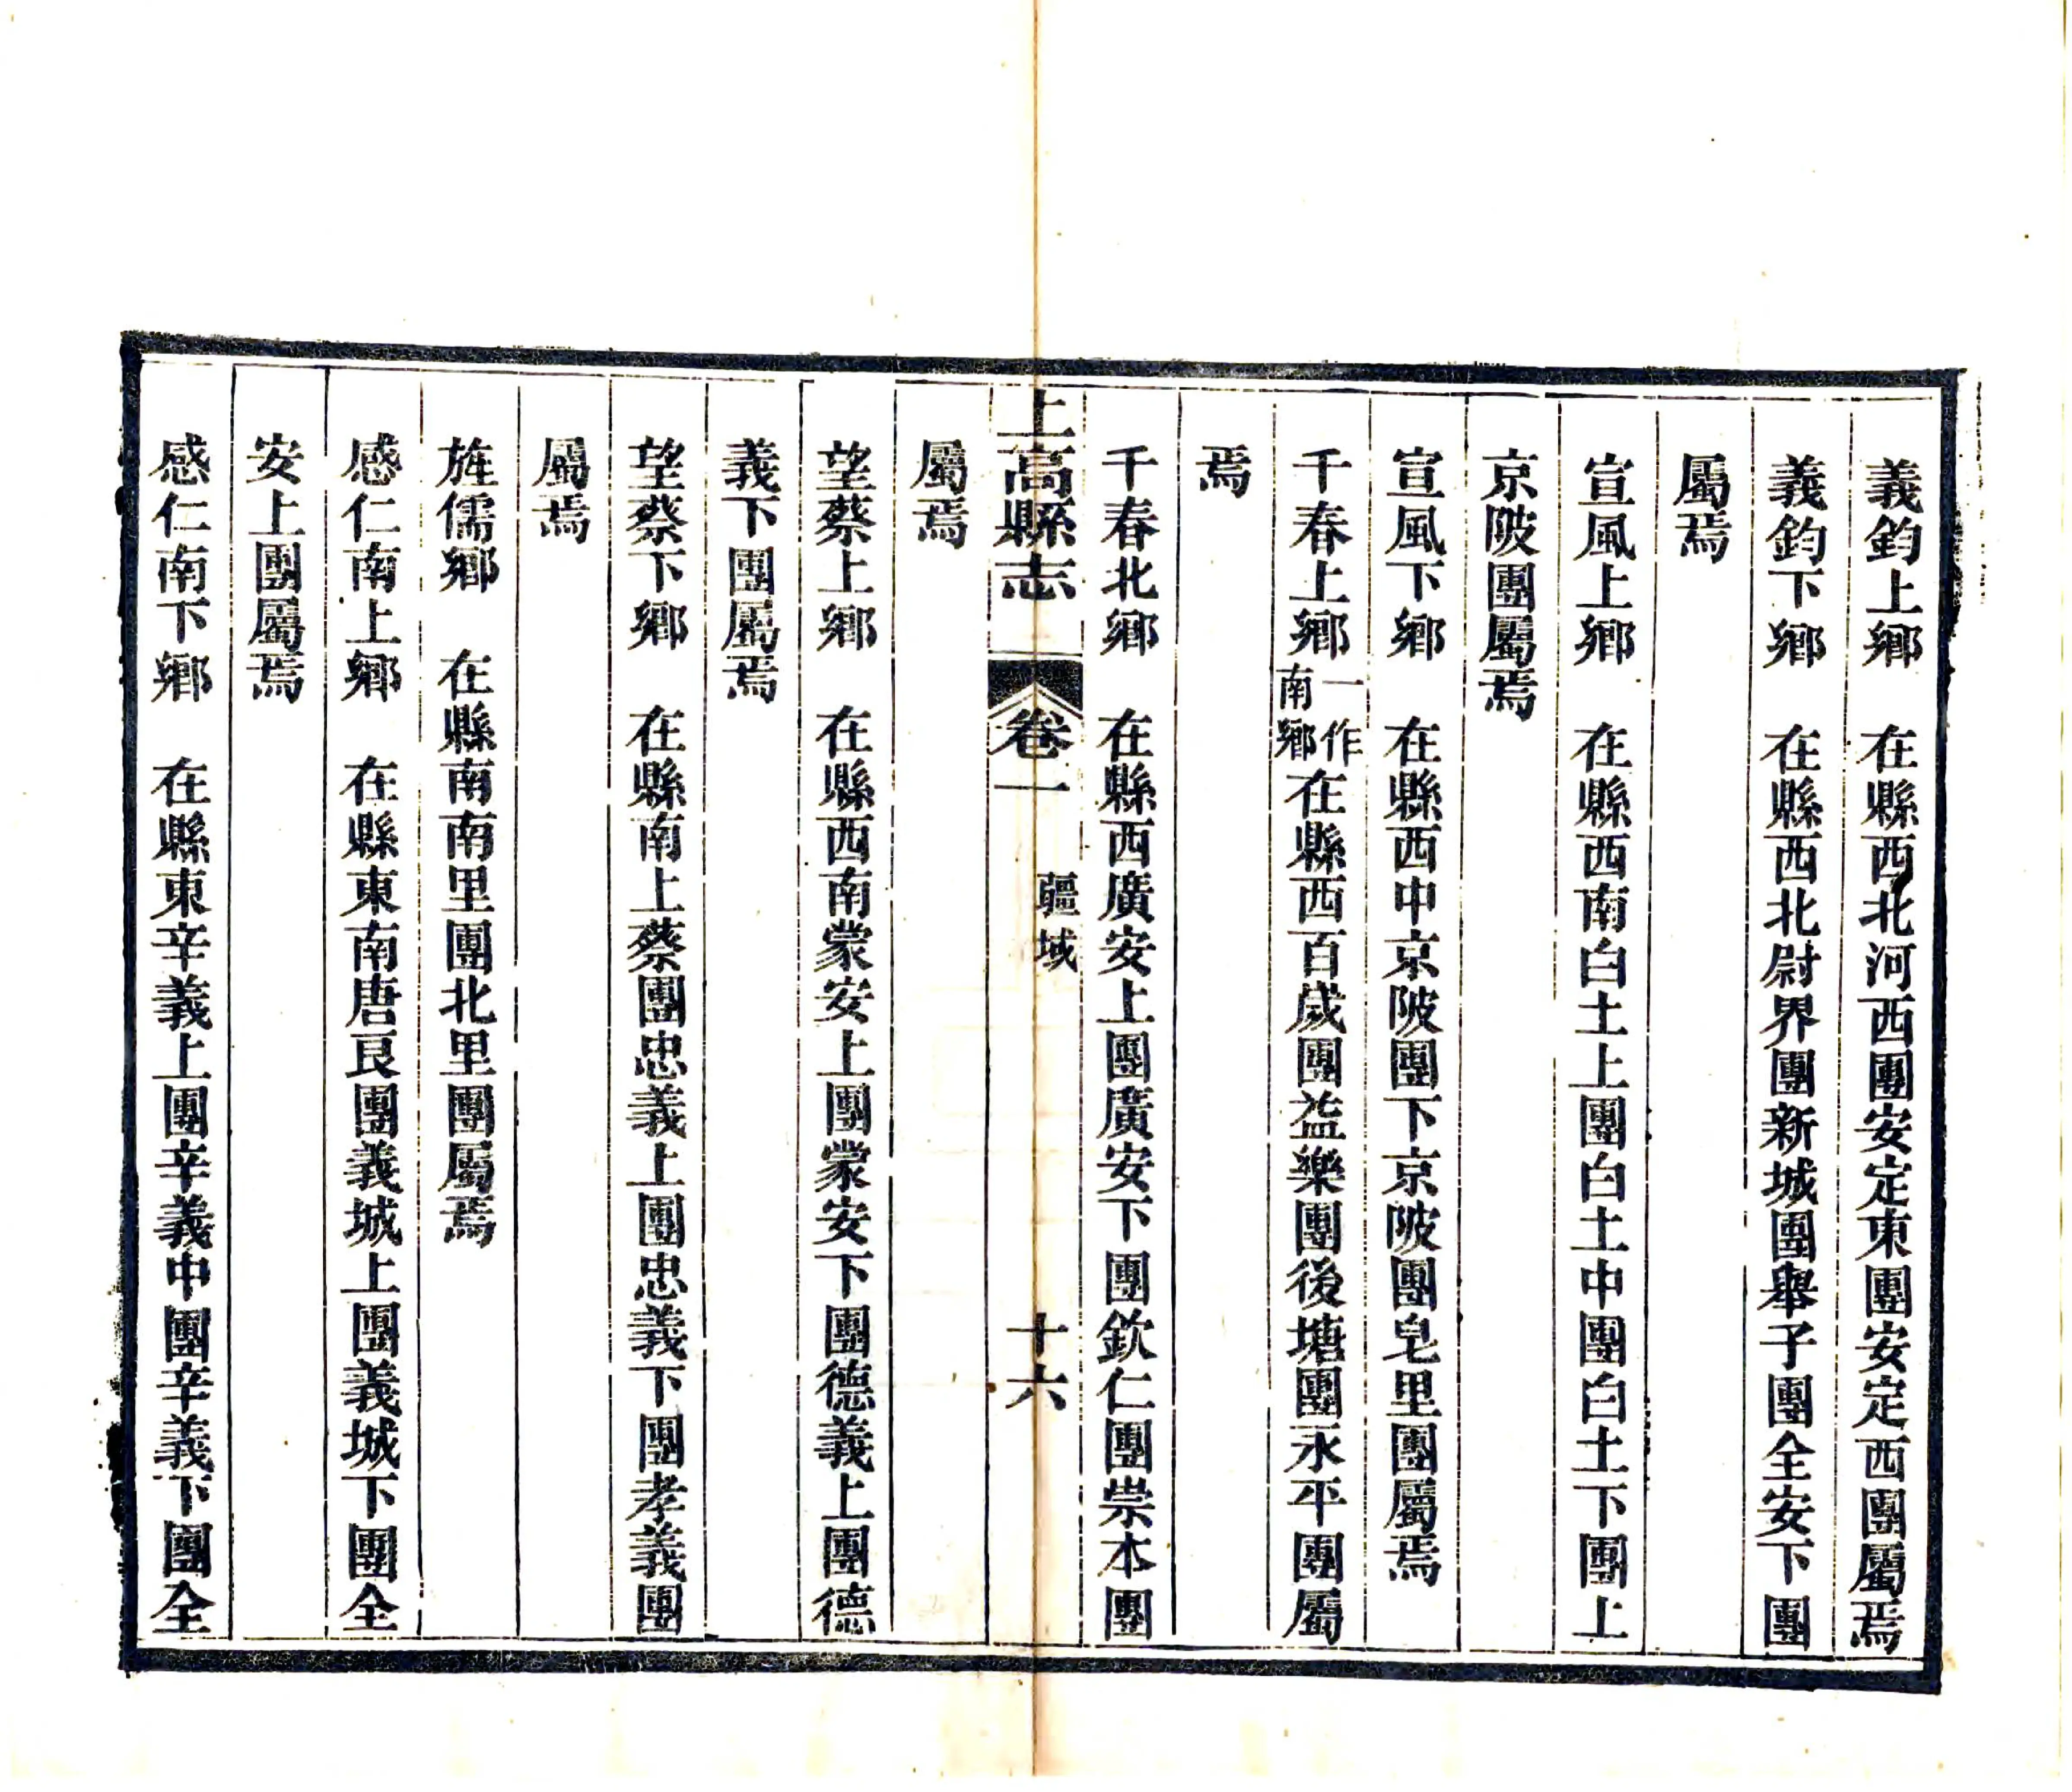 義鈞上鄉　在縣西北河西團安定東團安定西團屬焉
義鈞下鄉　在縣西北尉界團新城團舉子團全安下團
屬焉
宣風上鄉　在縣西南白土上團白土中團白土下團上
京陂團屬焉
宣風下鄉　在縣西中京陂團下京陂團皂里團屬焉
千春上鄉一作南鄉在縣西百歲團益樂團後塘團永平團屬
焉
千春北鄉　在縣西廣安上團廣安下團欽仁團崇本團
上高縣志　卷一　疆域　十六
屬焉
望蔡上鄉　在縣西南蒙安上團蒙安下團德義上團德
義下團屬焉
望蔡下鄉　在縣南上蔡團忠義上團忠義下團孝義團
屬焉
旌儒鄉　在縣南南里團北里團屬焉
感仁南上鄉　在縣東南唐良團義城上團義城下團全
安上團屬焉
感仁南下鄉　在縣東辛義上團辛義中團辛義下團全